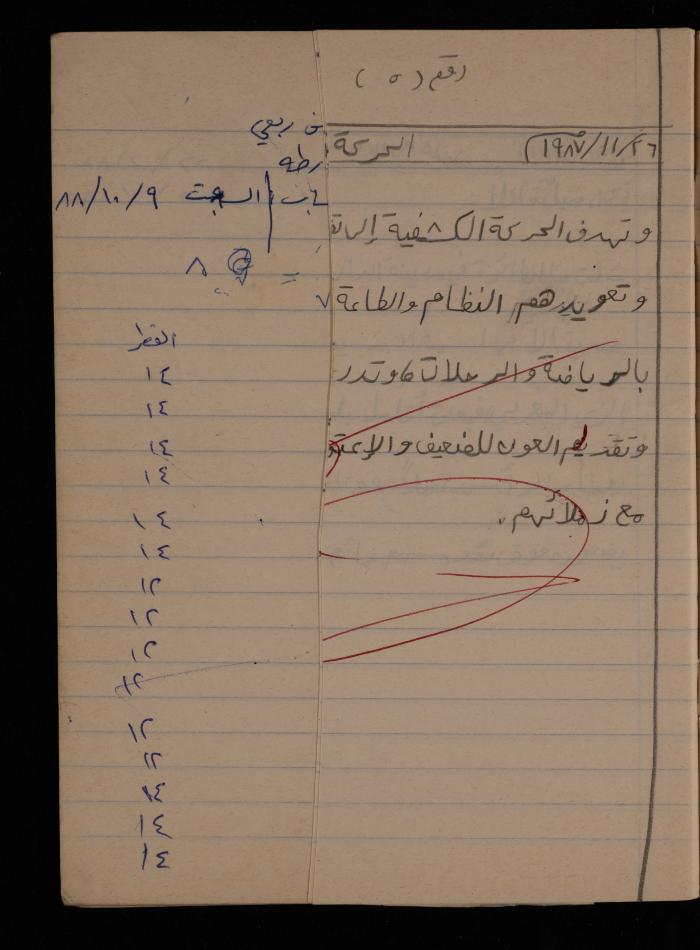 رقم ( ٥ )
١٩٨٧/١١/٢٦ الحركة
وتهدف الحركة الكشفية إلى
وتعويدهم النظام والطاعة
بالرياضة والرحلات كما وتدر
وتقديم العون للضعيف والإعتـ
مع زملائهم.
ربعي
السبت ٨٨/١٠/٩
= ٨
القطر
١٤
١٤
١٤
١٤
١٤
١٤
١٢
١٢
١٢
١٢
١٢
١٢
١٤
١٤
١٤